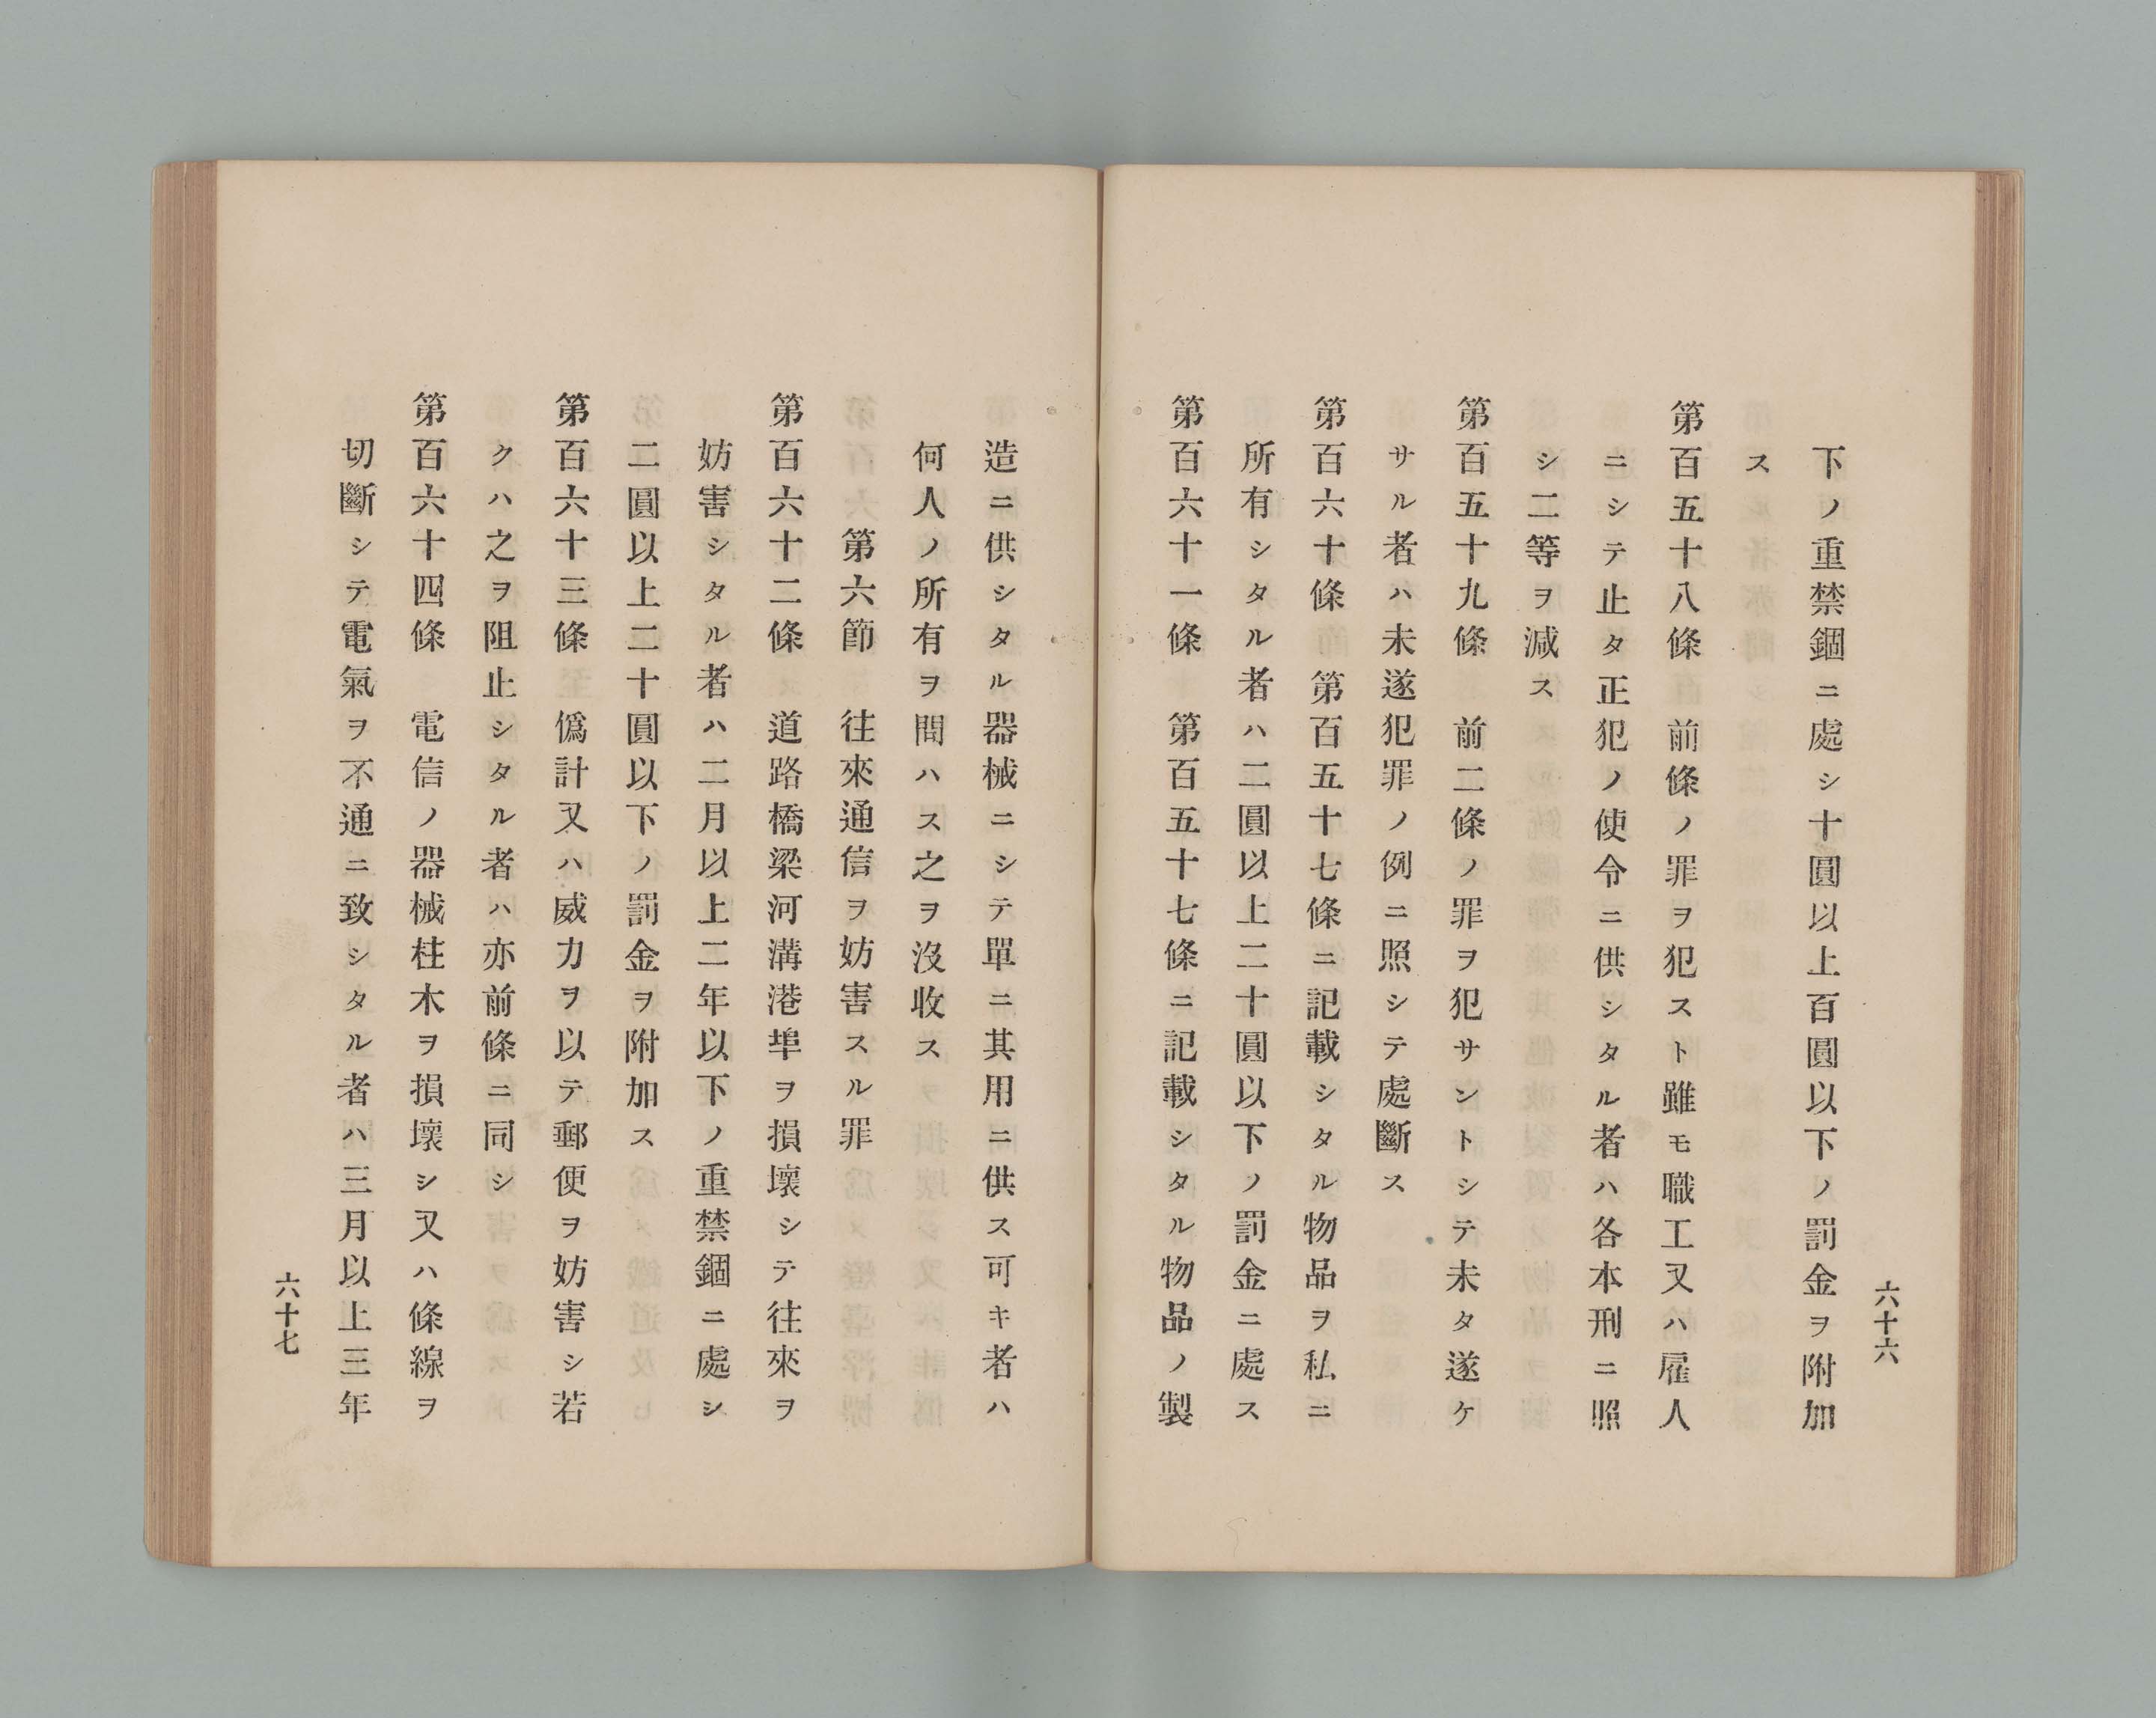 下ノ重禁錮ニ處シ十圓以上百圓以下ノ罰金ヲ附加
ス
第百五十八條　前條ノ罪ヲ犯スト雖モ職工又ハ雇人
ニシテ止タ正犯ノ使令ニ供シタル者ハ各本刑ニ照
シ二等ヲ減ス
第百五十九條　前二條ノ罪ヲ犯サントシテ未タ遂ケ
サル者ハ未遂犯罪ノ例ニ照シテ處斷ス
第百六十條　第百五十七條ニ記載シタル物品ヲ私ニ
所有シタル者ハ二圓以上二十圓以下ノ罰金ニ處ス
第百六十一條　第百五十七條ニ記載シタル物品ノ製
六十六
造ニ供シタル器械ニシテ單ニ其用ニ供ス可キ者ハ
何人ノ所有ヲ問ハス之ヲ沒收ス
第六節　往來通信ヲ妨害スル罪
第百六十二條　道路橋梁河溝港埠ヲ損壞シテ往來ヲ
妨害シタル者ハ二月以上二年以下ノ重禁錮ニ處シ
二圓以上二十圓以下ノ罰金ヲ附加ス
第百六十三條　僞計又ハ威力ヲ以テ郵便ヲ妨害シ若
クハ之ヲ阻止シタル者ハ亦前條ニ同シ
第百六十四條　電信ノ器械柱木ヲ損壞シ又ハ條線ヲ
切斷シテ電氣ヲ不通ニ致シタル者ハ三月以上三年
六十七